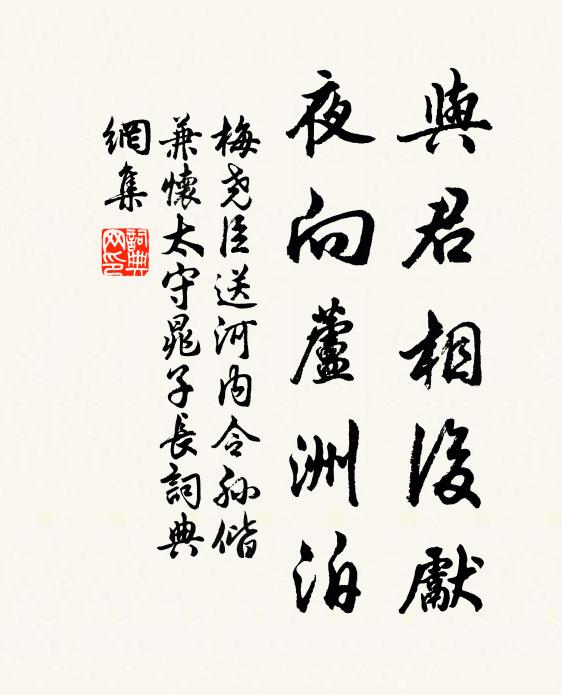 與君相後獻
夜向蘆洲泊
梅堯臣送河內令孫偕
兼懷太守晁子長詞典
網集
詞典網印